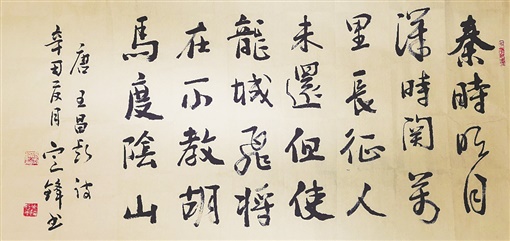 秦時明月
漢時関萬
里長征人
未還但使
龍城飛將
在不教胡
馬度陰山
唐王昌齡詩
辛丑夏月鋒書